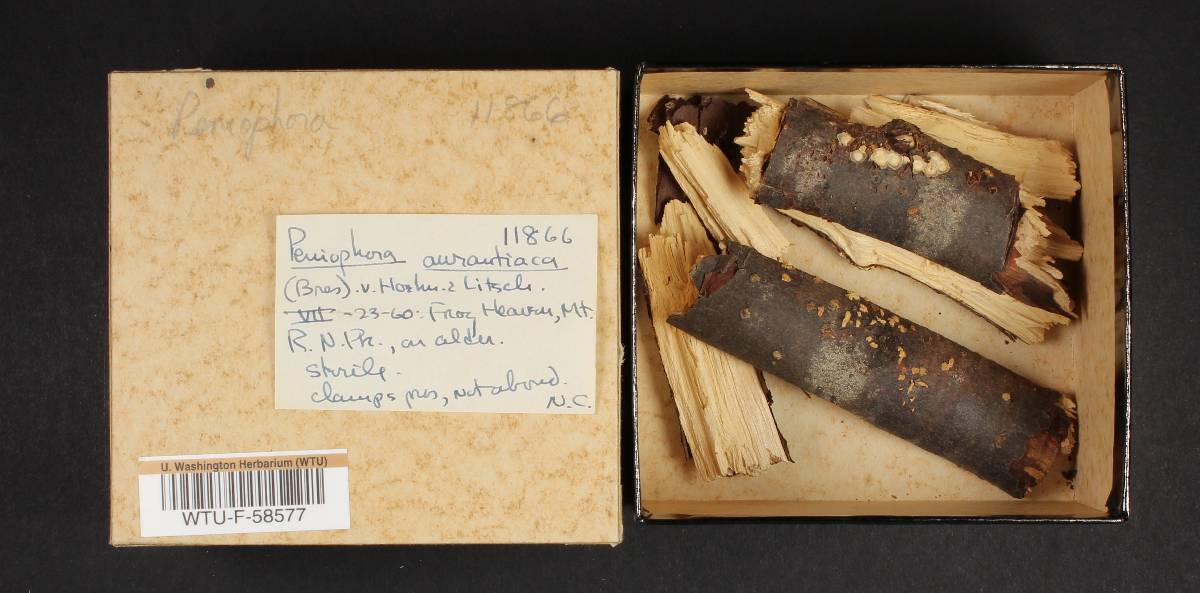 Peniophora 11866
11866
Peniophora aurantiaca
(Bres). v. Hoehn. & Litsch.
VII-23-60. Frog Heaven, Mt.
R. N. Pk., on alder.
sterile.
clamps pres, not abund.
N.C.
U. Washington Herbarium (WTU)
WTU-F-58577